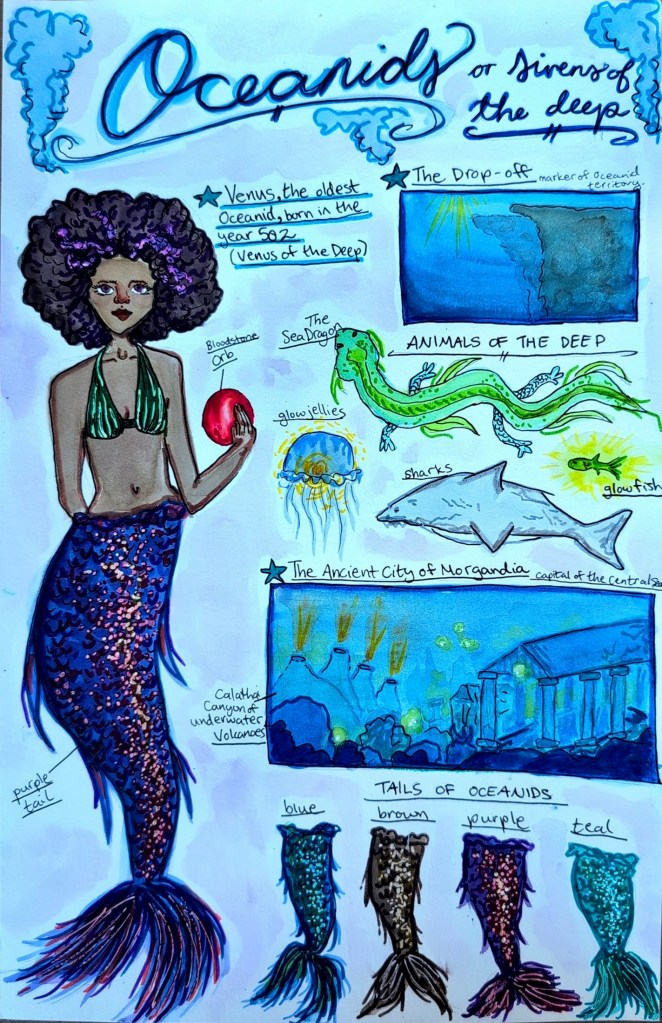 Oceanids or Sirens of
the deep
Venus, the oldest
Oceanid, born in the
year 502
(Venus of the Deep)
The Drop-off marker of Oceanid
territory.
Bloodstone
Orb
The
Sea Dragon
ANIMALS OF THE DEEP
glow jellies
sharks
glowfish
The Ancient City of Morgandia capital of the Central Sea
Calatha
Canyon of
underwater
Volcanoes
purple
tail
TAILS OF OCEANIDS
blue
brown
purple
teal